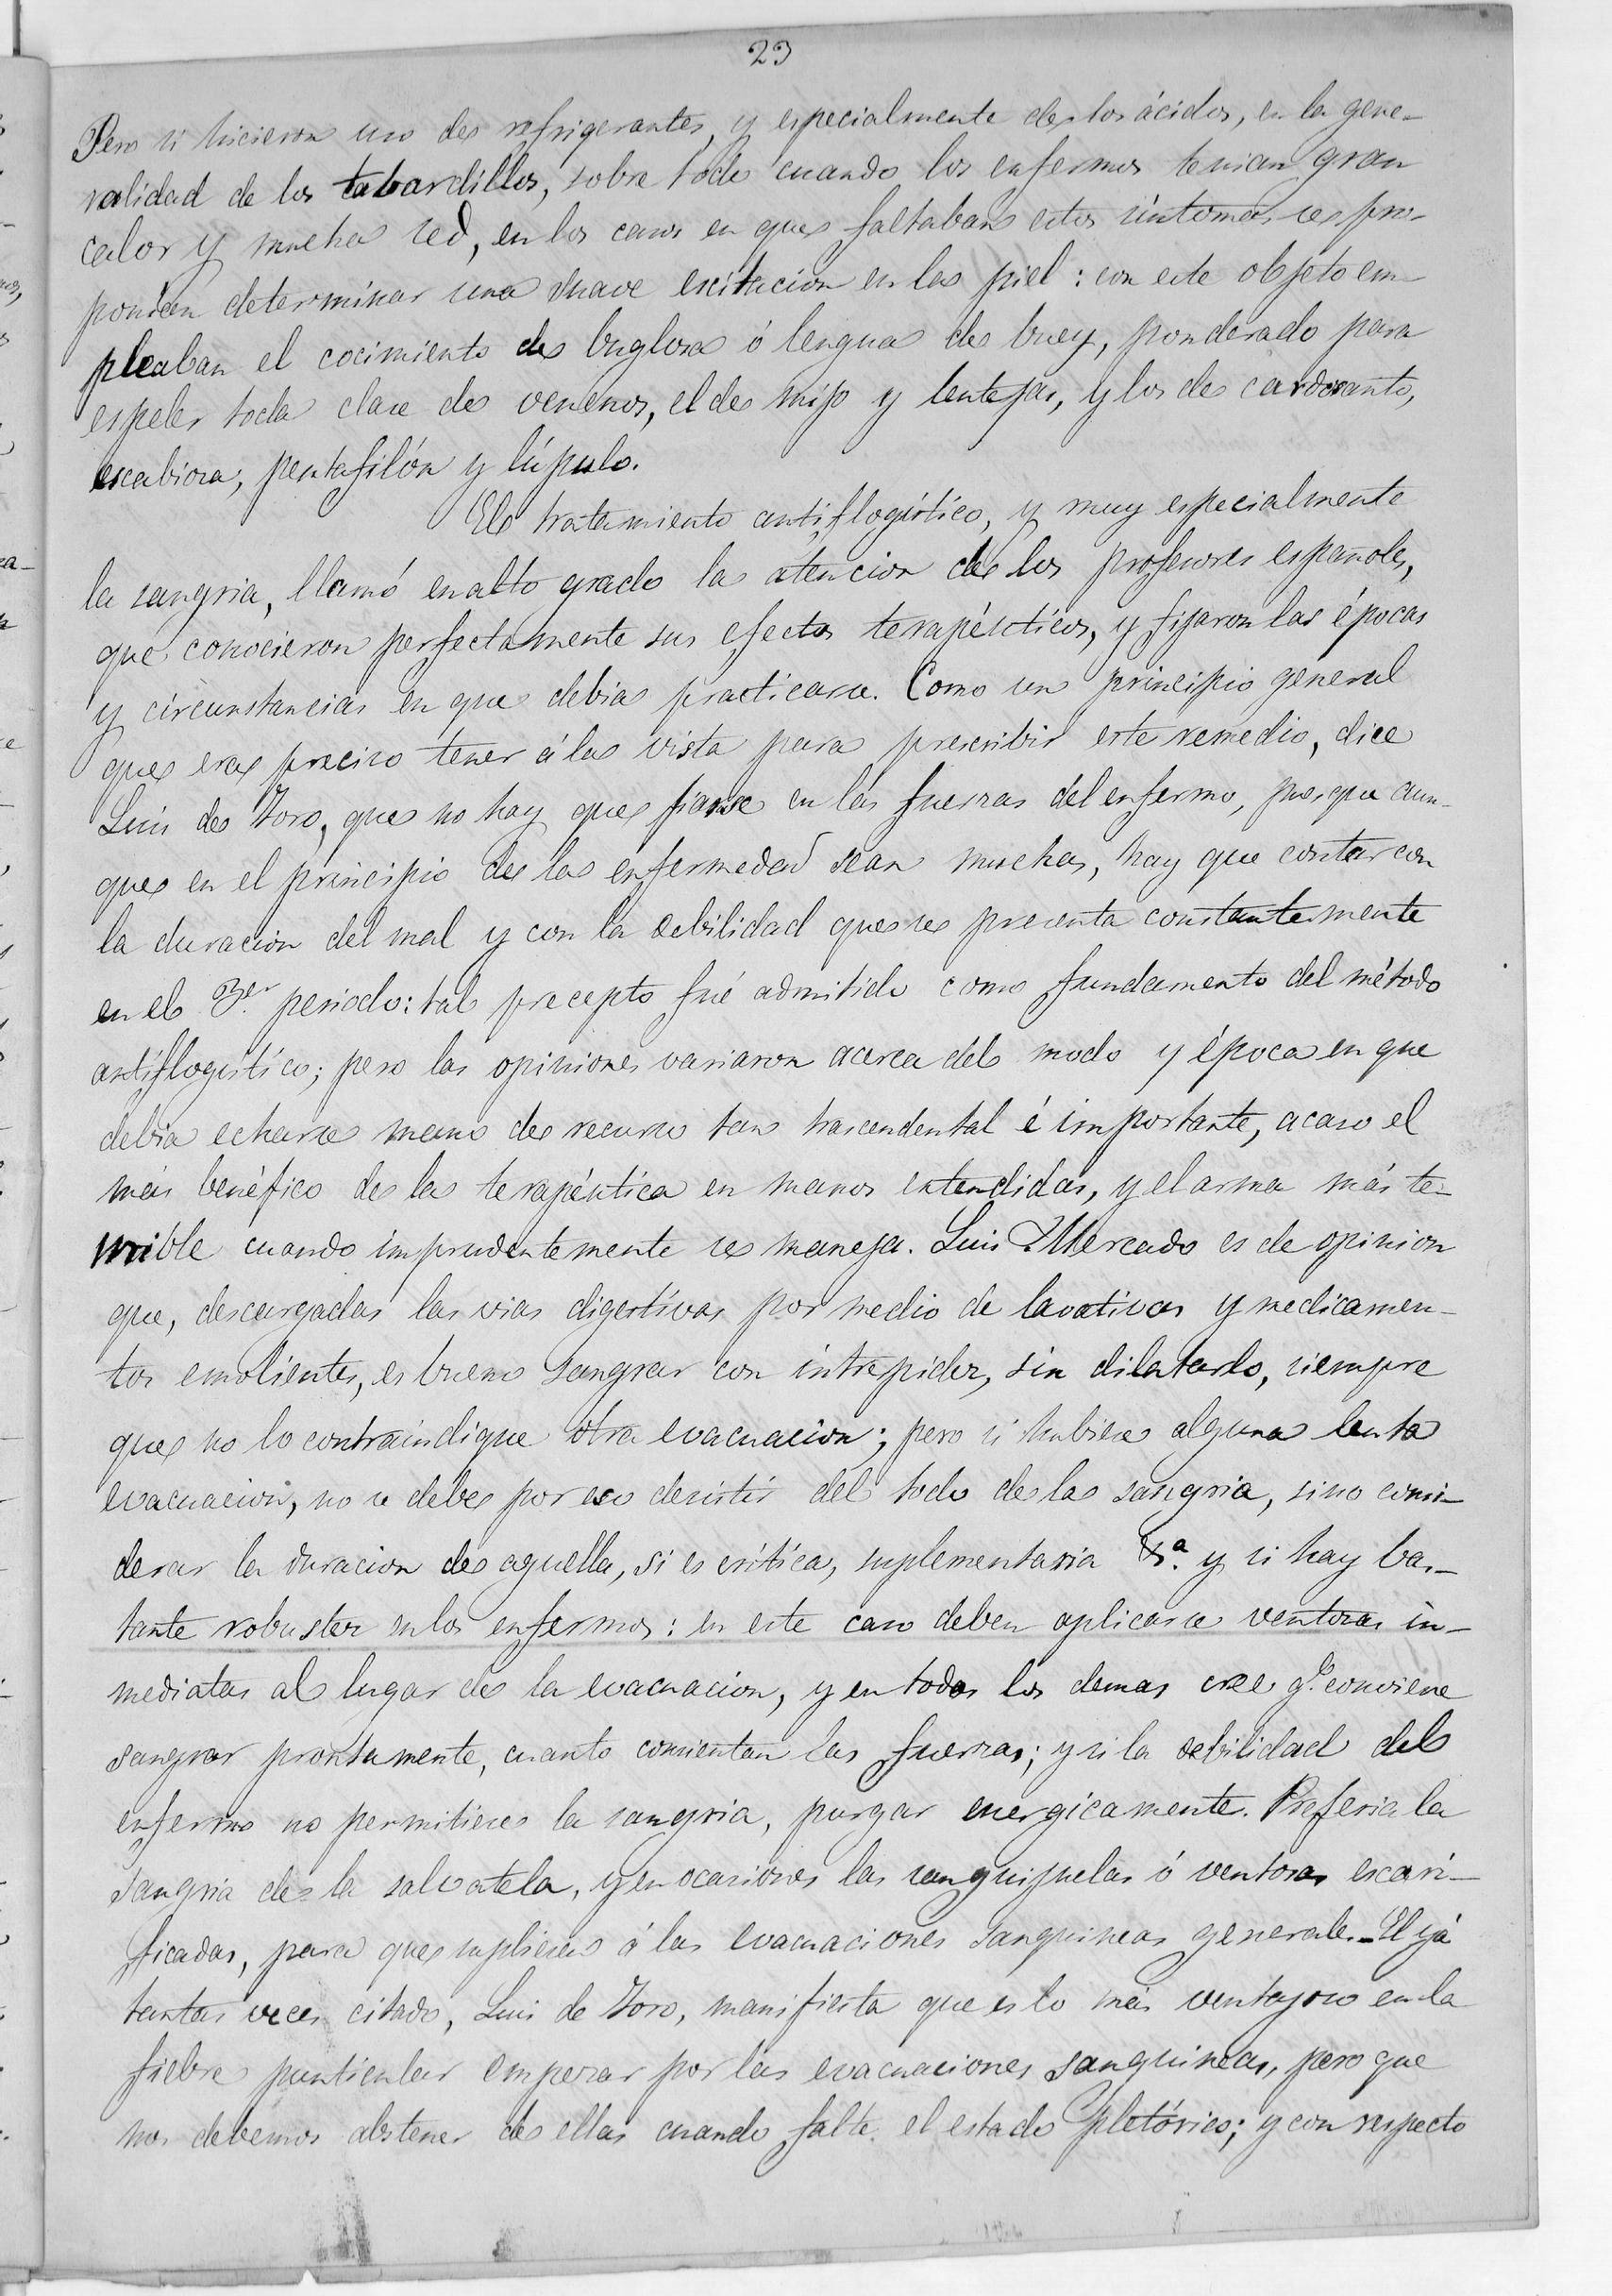 23
Pero si hicieron uso de refrigerantes, y especialmente de los ácidos, en la gene-
ralidad de los tabardillos, sobre todo cuando los enfermos tenian gran
calor y mucha sed, en los casos en que faltaban estos síntomas se pro-
ponian determinar una suave escitacion en la piel: con este objeto em-
pleaban el cocimiento de buglosa ó lengua de buey, ponderado para
espeler toda clase de venenos, el de mijo y lentejas, y los de cardosanto,
escabiosa, pentafilón y lúpulo.
El tratamiento antiflogístico, y muy especialmente
la sangria, llamó en alto grado la atencion de los profesores españoles,
que conocieron perfectamente sus efectos terapéuticos, y fijaron las épocas
y circunstancias en que debia practicarse. Como un principio general
que era preciso tener á la vista para prescribir este remedio, dice
Luis de Toro, que no hay que fiarse en las fuerzas del enfermo, porque aun-
que en el principio de la enfermedad sean muchas, hay que contar con
la duracion del mal y con la debilidad que se presenta constantemente
en el 3.er periodo: tal precepto fué admitido como fundamento del método
antiflogístico; pero las opiniones variaron acerca del modo y época en que
debia echarse mano de recurso tan trascendental é importante, acaso el
más benéfico de la terapéutica en manos entendidas, y el arma más te-
rrible cuando imprudentemente se maneja. Luis Mercado es de opinion
que, descargadas las vias digestivas por medio de lavativas y medicamen-
tos emolientes, es bueno sangrar con intrepidez, sin dilatarlo, siempre
que no lo contraindique otra evacuacion; pero si hubiese alguna lenta
evacuacion, no se debe por eso desistir del todo de la sangria, sino consi-
derar la duracion de aquella, si es crítica, suplementaria &.ª y si hay bas-
tante robustez en los enfermos: en este caso deben aplicarse ventosas in-
mediatas al lugar de la evacuacion, y en todos los demas cree q.e conviene
sangrar prontamente, cuanto consientan las fuerzas; y si la debilidad del
enfermo no permitiese la sangria, purgar energicamente. Preferia la
sangria de la salvatela, y en ocasiones las sanguijuelas ó ventosas escari-
ficadas, para que supliesen á las evacuaciones sanguineas generales. El yá
tantas veces citado, Luis de Toro, manifiesta que es lo más ventajoso en la
fiebre punticular empezar por las evacuaciones sanguineas, pero que
nos debemos abstener de ellas cuando falte el estado pletórico; y con respecto